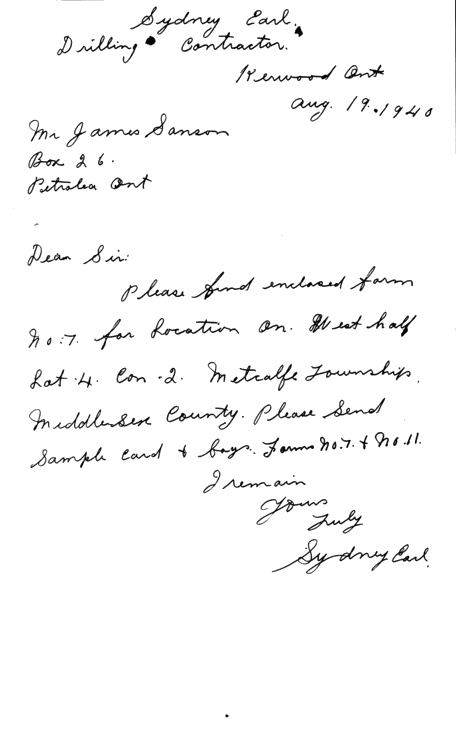 Sydney Earl.
Drilling Contractor.
Kerwood Ont
Aug. 19. 1940
Mr James Sanson
Box 26.
Petrolea Ont
Dear Sir:
Please find enclosed form
No: 7. for Location On. West half
Lot .4. Con .2. Metcalfe Township.
Middlesex County. Please Send
Sample Card & bags. Forms No. 7. & No. 11.
I remain
Yours
Truly
Sydney Earl.